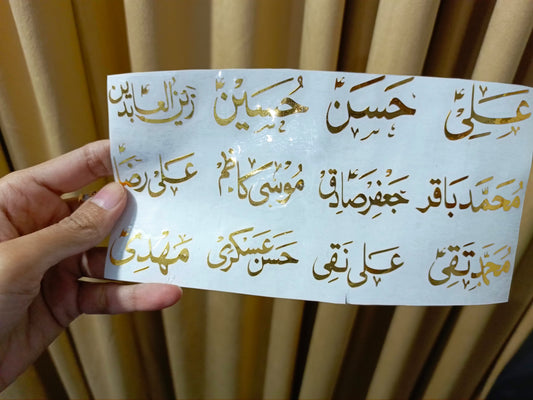 عَلِيّ حَسَن حُسَيْن زَيْن العَابِدين
مُحَمَّد بَاقر جَعْفَر صَادِق مُوسَى كَاظِم عَلى رِضَا
مُحَمَّد تَقِي عَلى نَقِي حَسَن عَسْكَرِي مَهْدِي